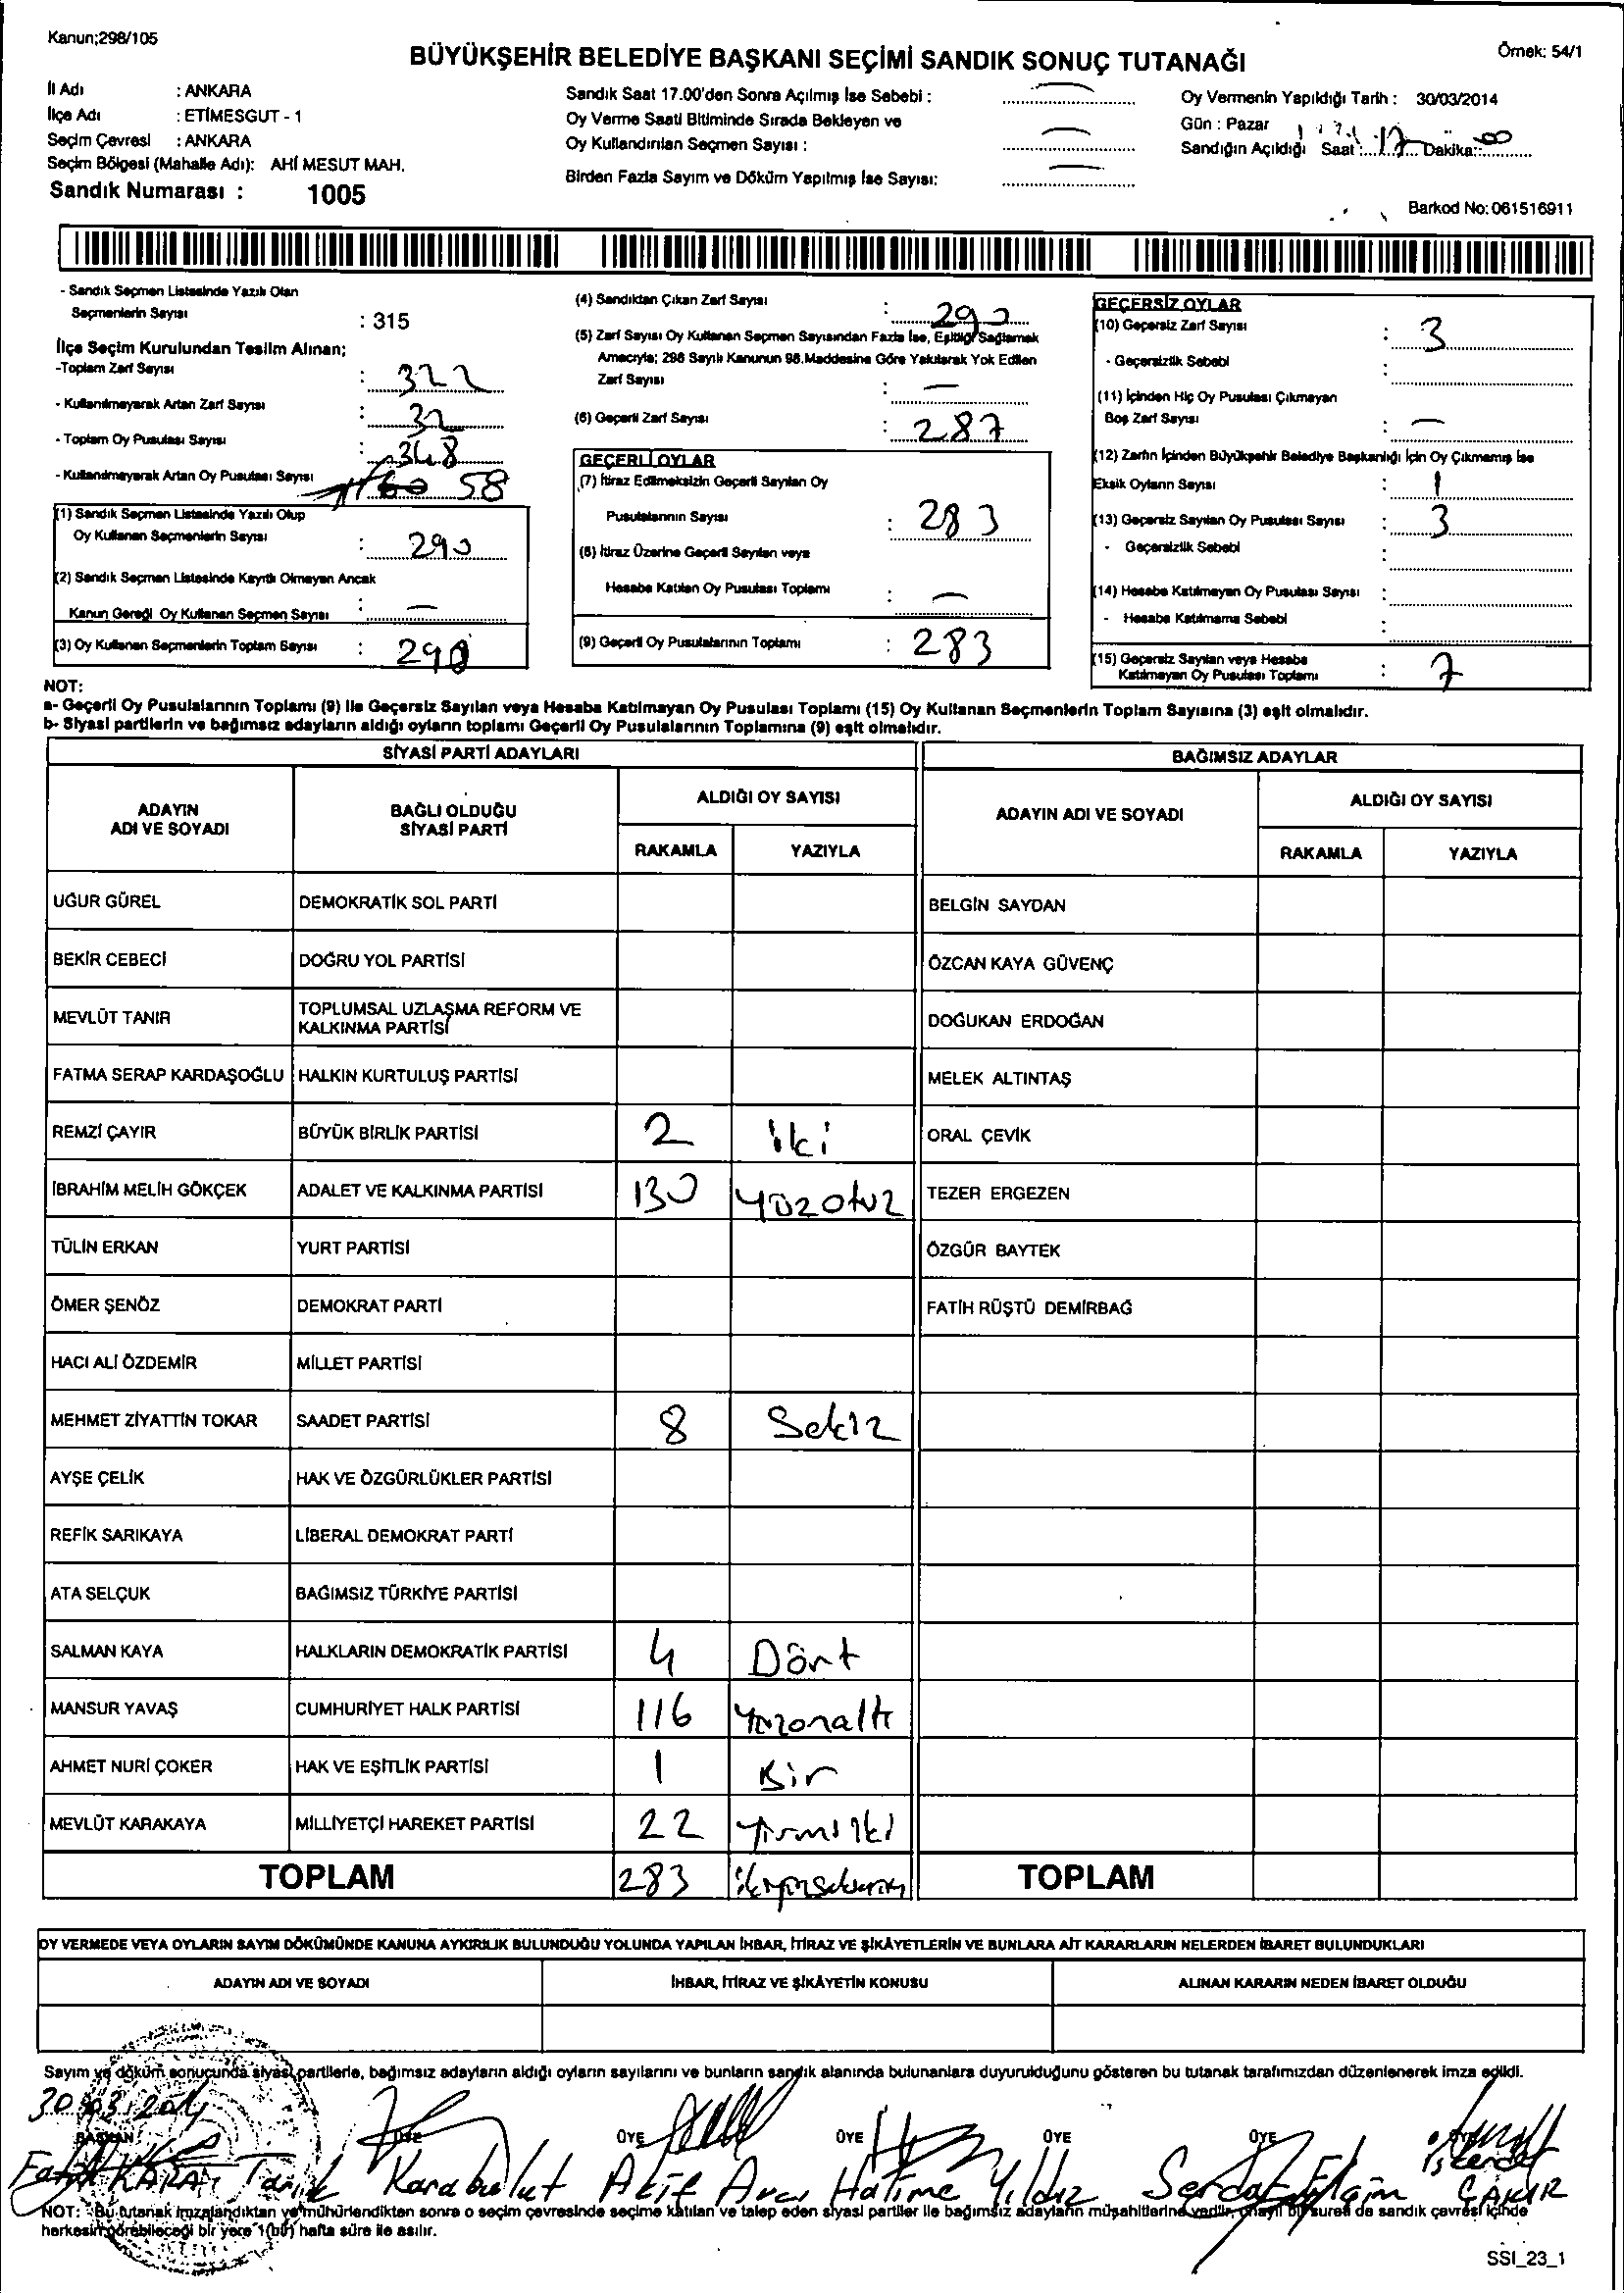 Kanun;298/105
Örnek: 54/1
BÜYÜKŞEHİR BELEDİYE BAŞKANI SEÇİMİ SANDIK SONUÇ TUTANAĞI
İl Adı : ANKARA
İlçe Adı : ETİMESGUT - 1
Seçim Çevresi : ANKARA
Seçim Bölgesi (Mahalle Adı): AHİ MESUT MAH.
Sandık Numarası : 1005
Sandık Saat 17.00'den Sonra Açılmış İse Sebebi : —
Oy Verme Saati Bitiminde Sırada Bekleyen ve
Oy Kullandırılan Seçmen Sayısı : —
Birden Fazla Sayım ve Döküm Yapılmış İse Sayısı: —
Oy Vermenin Yapıldığı Tarih : 30/03/2014
Gün : Pazar
Sandığın Açıldığı Saat :..17.. Dakika:..00..
Barkod No: 061516911
- Sandık Seçmen Listesinde Yazılı Olan
Seçmenlerin Sayısı : 315
İlçe Seçim Kurulundan Teslim Alınan;
-Toplam Zarf Sayısı : 322
- Kullanılmayarak Artan Zarf Sayısı : 32
- Toplam Oy Pusulası Sayısı : 348
- Kullanılmayarak Artan Oy Pusulası Sayısı 58
(1) Sandık Seçmen Listesinde Yazılı Olup
Oy Kullanan Seçmenlerin Sayısı : 290
(2) Sandık Seçmen Listesinde Kayıtlı Olmayan Ancak
Kanun Gereği Oy Kullanan Seçmen Sayısı : —
(3) Oy Kullanan Seçmenlerin Toplam Sayısı : 290
(4) Sandıktan Çıkan Zarf Sayısı : 290
(5) Zarf Sayısı Oy Kullanan Seçmen Sayısından Fazla İse, Eşitliği Sağlamak
Amacıyla; 298 Sayılı Kanunun 98.Maddesine Göre Yakılarak Yok Edilen
Zarf Sayısı : —
(6) Geçerli Zarf Sayısı : 287
GEÇERLİ OYLAR
(7) İtiraz Edilmeksizin Geçerli Sayılan Oy
Pusulalarının Sayısı : 283
(8) İtiraz Üzerine Geçerli Sayılan veya
Hesaba Katılan Oy Pusulası Toplamı : —
(9) Geçerli Oy Pusulalarının Toplamı : 283
GEÇERSİZ OYLAR
(10) Geçersiz Zarf Sayısı : 3
- Geçersizlik Sebebi :
(11) İçinden Hiç Oy Pusulası Çıkmayan
Boş Zarf Sayısı : —
(12) Zarfın İçinden Büyükşehir Belediye Başkanlığı İçin Oy Çıkmamış İse
Eksik Oyların Sayısı : 1
(13) Geçersiz Sayılan Oy Pusulası Sayısı : 3
- Geçersizlik Sebebi :
(14) Hesaba Katılmayan Oy Pusulası Sayısı :
- Hesaba Katılmama Sebebi :
(15) Geçersiz Sayılan veya Hesaba
Katılmayan Oy Pusulası Toplamı : 7
NOT:
a- Geçerli Oy Pusulalarının Toplamı (9) ile Geçersiz Sayılan veya Hesaba Katılmayan Oy Pusulası Toplamı (15) Oy Kullanan Seçmenlerin Toplam Sayısına (3) eşit olmalıdır.
b- Siyasi partilerin ve bağımsız adayların aldığı oyların toplamı Geçerli Oy Pusulalarının Toplamına (9) eşit olmalıdır.
SİYASİ PARTİ ADAYLARI BAĞIMSIZ ADAYLAR
ADAYIN ADI VE SOYADI BAĞLI OLDUĞU SİYASİ PARTİ ALDIĞI OY SAYISI ADAYIN ADI VE SOYADI ALDIĞI OY SAYISI
RAKAMLA YAZIYLA RAKAMLA YAZIYLA
UĞUR GÜREL DEMOKRATİK SOL PARTİ BELGİN SAYDAN
BEKİR CEBECİ DOĞRU YOL PARTİSİ ÖZCAN KAYA GÜVENÇ
MEVLÜT TANIR TOPLUMSAL UZLAŞMA REFORM VE KALKINMA PARTİSİ DOĞUKAN ERDOĞAN
FATMA SERAP KARDAŞOĞLU HALKIN KURTULUŞ PARTİSİ MELEK ALTINTAŞ
REMZİ ÇAYIR BÜYÜK BİRLİK PARTİSİ 2 iki ORAL ÇEVİK
İBRAHİM MELİH GÖKÇEK ADALET VE KALKINMA PARTİSİ 130 Yüzotuz TEZER ERGEZEN
TÜLİN ERKAN YURT PARTİSİ ÖZGÜR BAYTEK
ÖMER ŞENÖZ DEMOKRAT PARTİ FATİH RÜŞTÜ DEMİRBAĞ
HACI ALİ ÖZDEMİR MİLLET PARTİSİ
MEHMET ZİYATTİN TOKAR SAADET PARTİSİ 8 Sekiz
AYŞE ÇELİK HAK VE ÖZGÜRLÜKLER PARTİSİ
REFİK SARIKAYA LİBERAL DEMOKRAT PARTİ
ATA SELÇUK BAĞIMSIZ TÜRKİYE PARTİSİ
SALMAN KAYA HALKLARIN DEMOKRATİK PARTİSİ 4 Dört
MANSUR YAVAŞ CUMHURİYET HALK PARTİSİ 116 Yüzonaltı
AHMET NURİ ÇOKER HAK VE EŞİTLİK PARTİSİ 1 Bir
MEVLÜT KARAKAYA MİLLİYETÇİ HAREKET PARTİSİ 22 Yirmi iki
TOPLAM 283 TOPLAM
OY VERMEDE VEYA OYLARIN SAYIM DÖKÜMÜNDE KANUNA AYKIRILIK BULUNDUĞU YOLUNDA YAPILAN İHBAR, İTİRAZ VE ŞİKÂYETLERİN VE BUNLARA AİT KARARLARIN NELERDEN İBARET BULUNDUKLARI
ADAYIN ADI VE SOYADI İHBAR, İTİRAZ VE ŞİKÂYETİN KONUSU ALINAN KARARIN NEDEN İBARET OLDUĞU
Sayım ve döküm sonucunda siyasi partilerle, bağımsız adayların aldığı oyların sayılarını ve bunların sandık alanında bulunanlara duyurulduğunu gösteren bu tutanak tarafımızdan düzenlenerek imza edildi.
30.03.2014
BAŞKAN ÜYE ÜYE ÜYE ÜYE ÜYE ÜYE
Fatih KARA Tarık Karabulut Akif Avcı Hatime Yıldız Serdar İskender ÇAKIR
NOT: Bu tutanak imzalandıktan ve mühürlendikten sonra o seçim çevresinde seçime katılan ve talep eden siyasi partiler ile bağımsız adayların müşahitlerine verilir, onaylı bir sureti de sandık çevresi içinde
herkesin görebileceği bir yere 1(bir) hafta süre ile asılır.
SSI_23_1